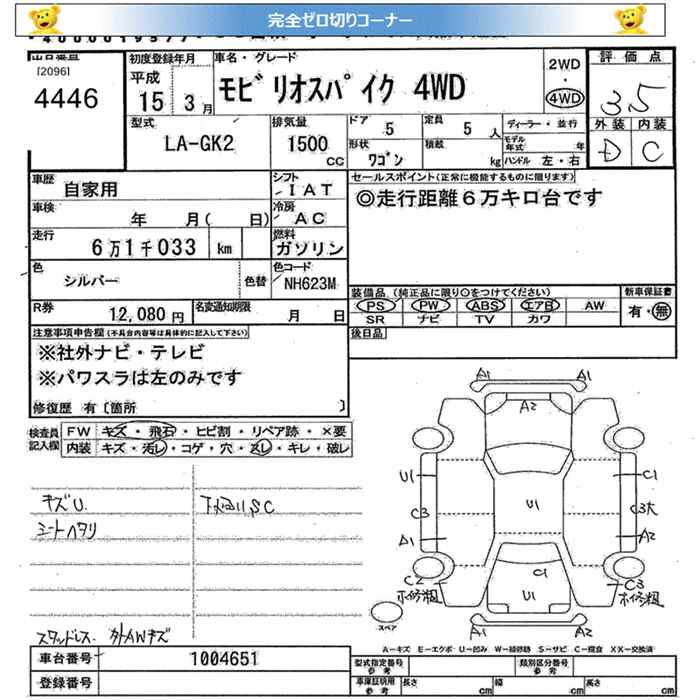 完全ゼロ切りコーナー
[2096]
4446
初度登録年月
平成
15 3月
車名・グレード
モビリオスパイク 4WD
2WD
・
4WD
評価点
3.5
外装 内装
D C
型式
LA-GK2
排気量
1500
CC
ドア
5
定員
5 人
形状
ワゴン
積載
kg
ディーラー・並行
モデル年式 年
ハンドル 左・右
車歴
自家用
シフト
IAT
車検
年 月( 日)
冷房
AC
走行
6万1千033 km
燃料
ガソリン
色
シルバー
色替
色コード
NH623M
セールスポイント(正常に機能するものに限ります)
◎走行距離6万キロ台です
R券
12,080 円
名変通知期限
月 日
装備品 (純正品に限り○をつけてください)
PS PW ABS エアB AW
SR ナビ TV カワ
新車保証書
有・無
後日品
注意事項申告欄(不具合内容等は具体的に記入して下さい)
※社外ナビ・テレビ
※パワスラは左のみです
修復歴 有〔箇所 〕
検査員記入欄
FW キズ・飛石・ヒビ割・リペア跡・×要
内装 キズ・汚レ・コゲ・穴・スレ・キレ・破レ
キズU.
シートヘタリ
下廻り,SC
スタッドレス. 外AWキズ
A1 A1
A2
U1 C1
U1
C3 C3大
A1 A2
C1
C2 C3
ホ修粗 ホ修粗
U1
A1 A2
スペア
A-キズ E-エクボ U-凹み W-補修跡 S-サビ C-腐食 XX-交換済
車台番号
1004651
登録番号
型式指定番号
参考
類別区分番号
参考
車庫証明用
参考
長さ cm 幅 cm 高さ cm